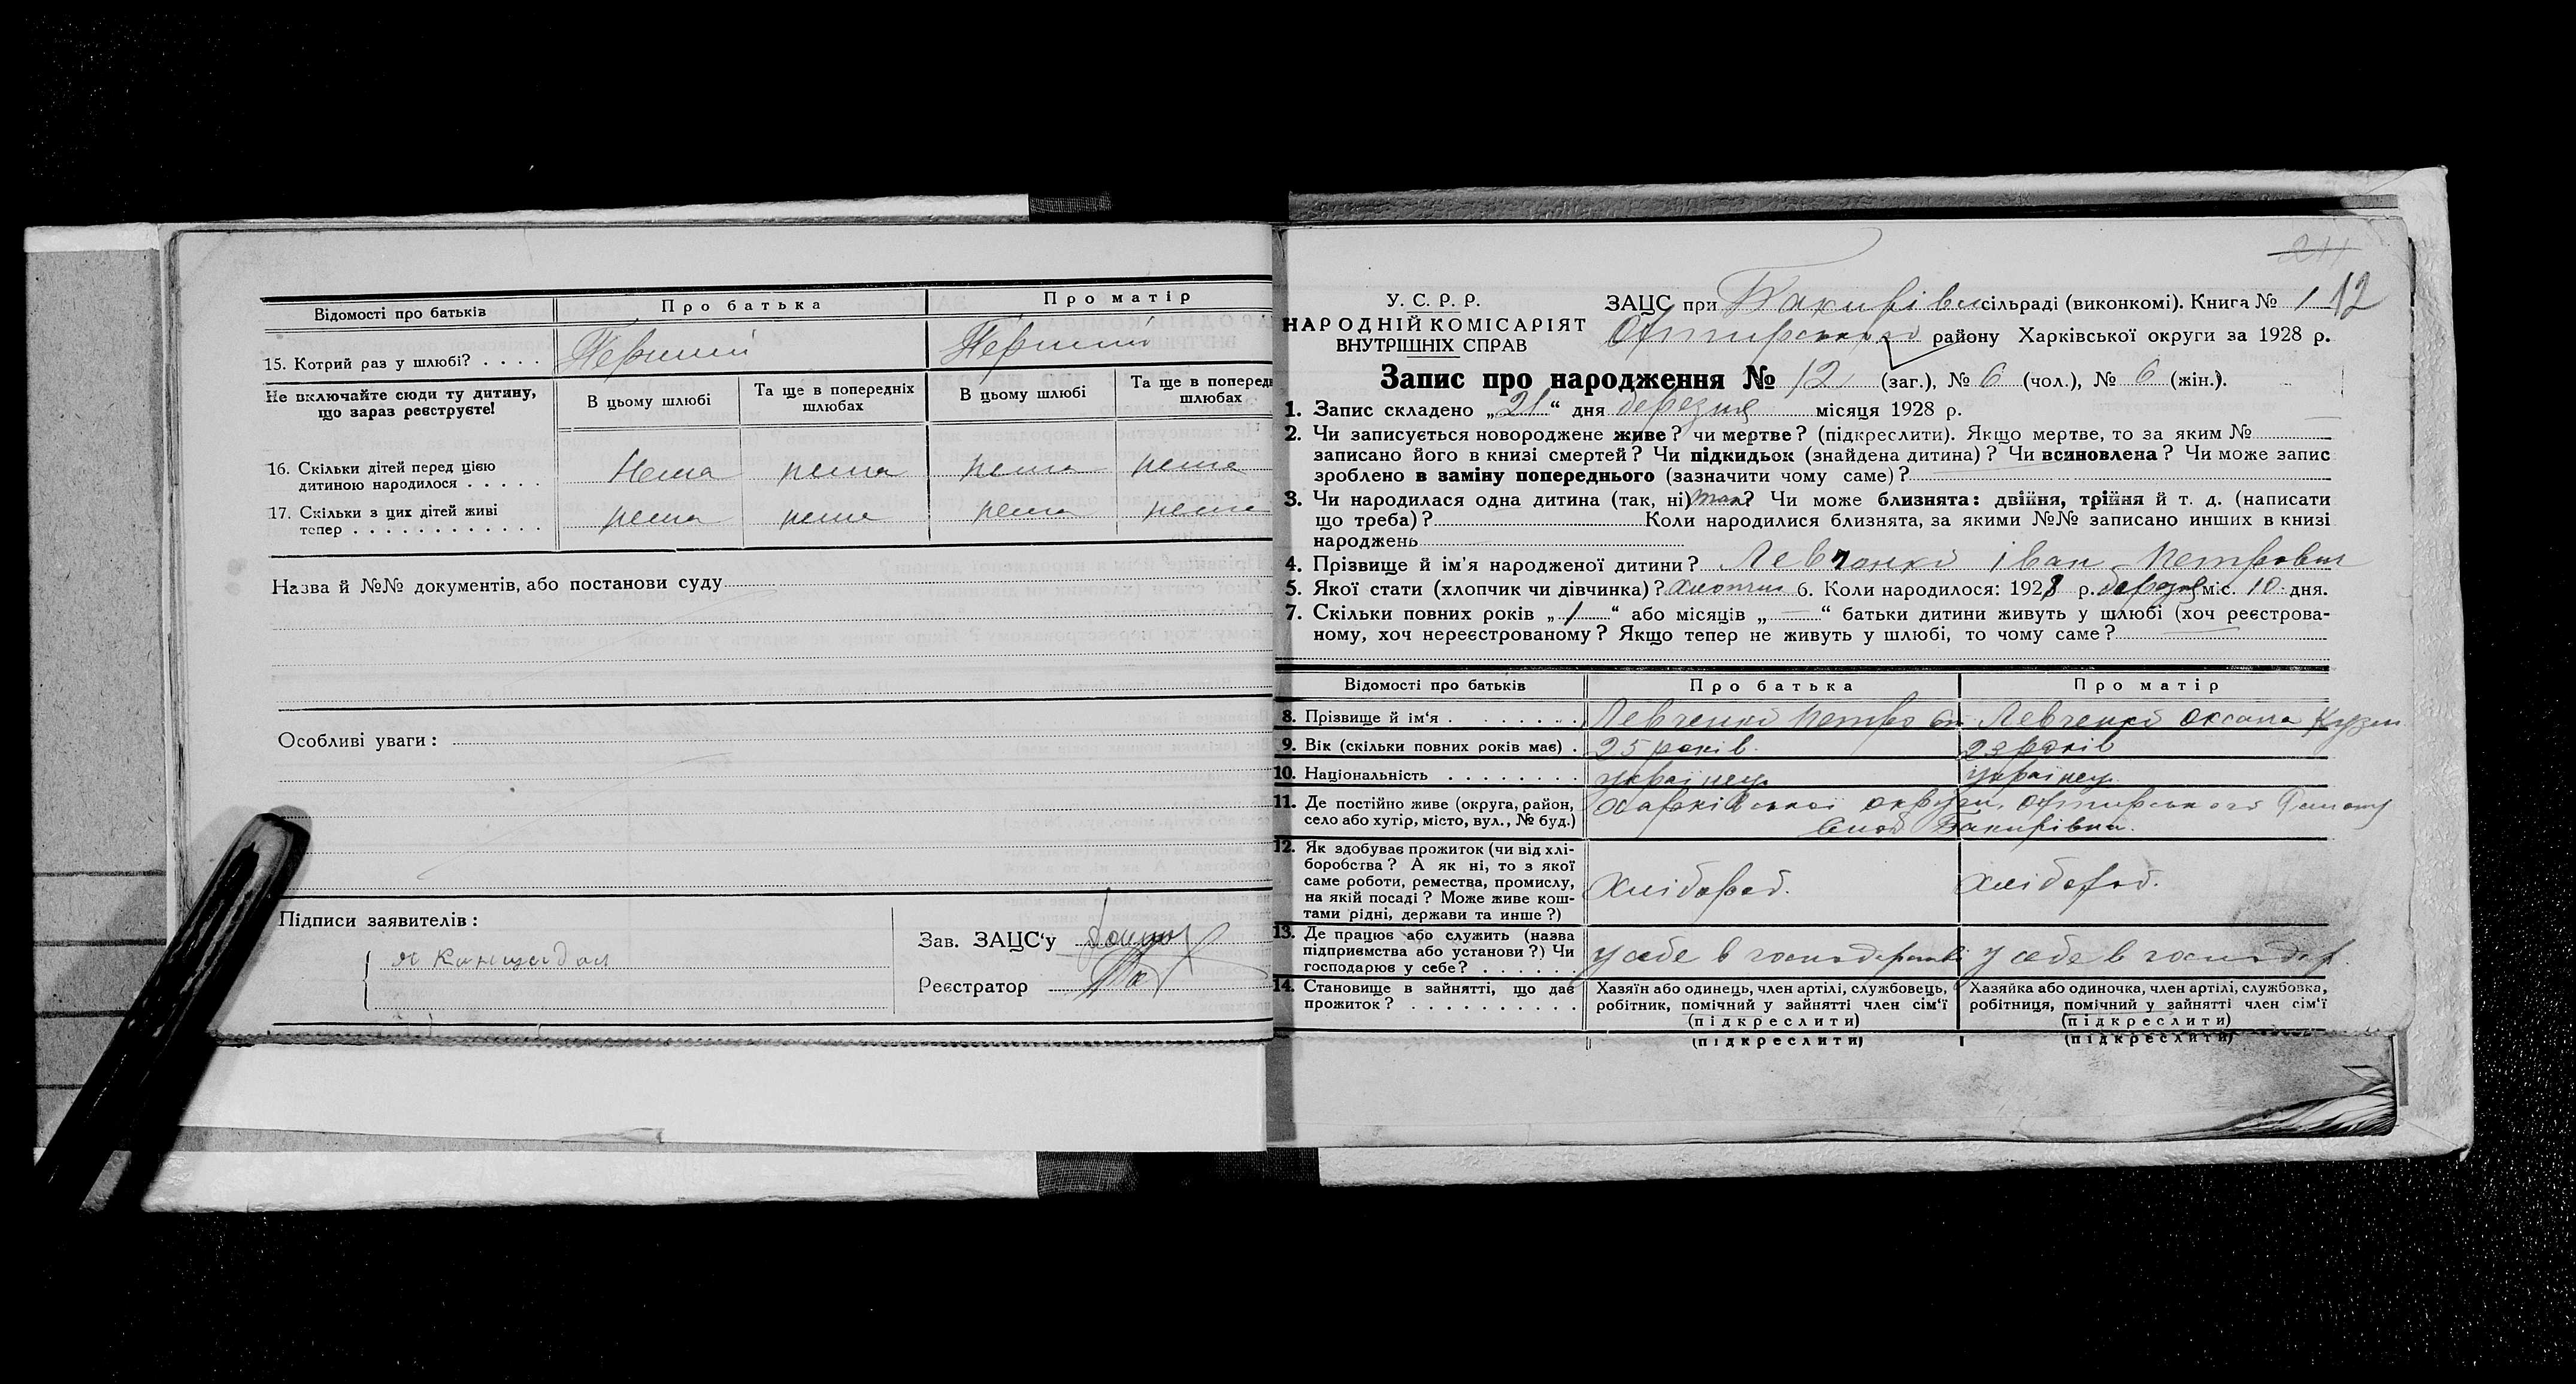 Відомості про батьків
Про батька
Про матір
15. Котрий раз у шлюбі? . . . .
Перший
Перший
Не включайте сюди ту дитину,
що зараз реєструєте!
В цьому шлюбі
Та ще в попередніх
шлюбах
В цьому шлюбі
Та ще в поперед
шлюбах
16. Скільки дітей перед цією
дитиною народилося . . . . .
Нема нема нема нема
17. Скільки з цих дітей живі
тепер . . . . . . . . . . . .
нема нема нема нема
Назва й №№ документів, або постанови суду
Особливі уваги:
Підписи заявителів:
Зав. ЗАЦС'у
Реєстратор
211
12
У. С. Р. Р.
НАРОДНІЙ КОМІСАРІЯТ
ВНУТРІШНІХ СПРАВ
ЗАЦС при Бакирівськ сільраді (виконкомі). Книга № 1
Охтирського району Харківської округи за 1928 р.
Запис про народження № 12 (заг.), № 6 (чол.), № 6 (жін.).
1. Запис складено „21" дня березня місяця 1928 р.
2. Чи записується новороджене живе? чи мертве? (підкреслити). Якщо мертве, то за яким №
записано його в книзі смертей? Чи підкидьок (знайдена дитина)? Чи всиновлена? Чи може запис
зроблено в заміну попереднього (зазначити чому саме)?
3. Чи народилася одна дитина (так, ні) так? Чи може близнята: двійня, трійня й т. д. (написати
що треба)? Коли народилися близнята, за якими №№ записано инших в книзі
народжень
4. Прізвище й ім'я народженої дитини? Левченко Іван Петрович
5. Якої стати (хлопчик чи дівчинка)? хлопчик 6. Коли народилося: 1928 р. березня міс. 10 дня.
7. Скільки повних років „1" або місяців „—" батьки дитини живуть у шлюбі (хоч реєстрова-
ному, хоч нереєстрованому? Якщо тепер не живуть у шлюбі, то чому саме?
Відомості про батьків
Про батька
Про матір
8. Прізвище й ім'я . . . . . . . .
Левченко Петро
Левченко Оксана Кузьм
9. Вік (скільки повних років має) .
25 років.
років
10. Національність . . . . . . . .
українец.
українец.
11. Де постійно живе (округа, район,
село або хутір, місто, вул., № буд.)
Харківської округи, Охтирського району
Бакирівка.
12. Як здобуває прожиток (чи від хлі-
боробства? А як ні, то з якої
саме роботи, ремества, промислу,
на якій посаді? Може живе кош-
тами рідні, держави та инше?)
Хлібороб.
Хлібороб.
13. Де працює або служить (назва
підприємства або установи?) Чи
господарює у себе? . . . . . .
у себе в господарстві
у себе в господар.
14. Становище в зайнятті, що дає
прожиток? . . . . . . . . . .
Хазяїн або одинець, член артілі, службовець,
робітник, помічний у зайнятті член сім'ї
(підкреслити)
Хазяйка або одиночка, член артілі, службовка,
робітниця, помічний у зайнятті член сім'ї
(підкреслити)
(підкреслити)
(підкреслити)